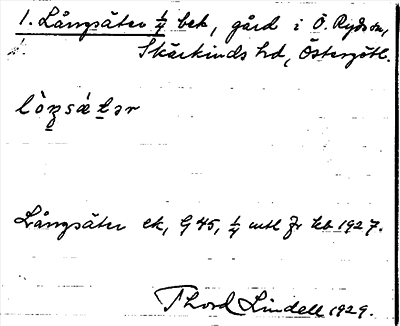 1. Långsäter 1/4 bek, gård i Ö. Ryds sn,
Skärkinds hd, Östergötl.
lòŋsǽtər
Långsäter ek, G 45, 1/4 mtl Jr keb 1927.
Thord Lindell 1929.